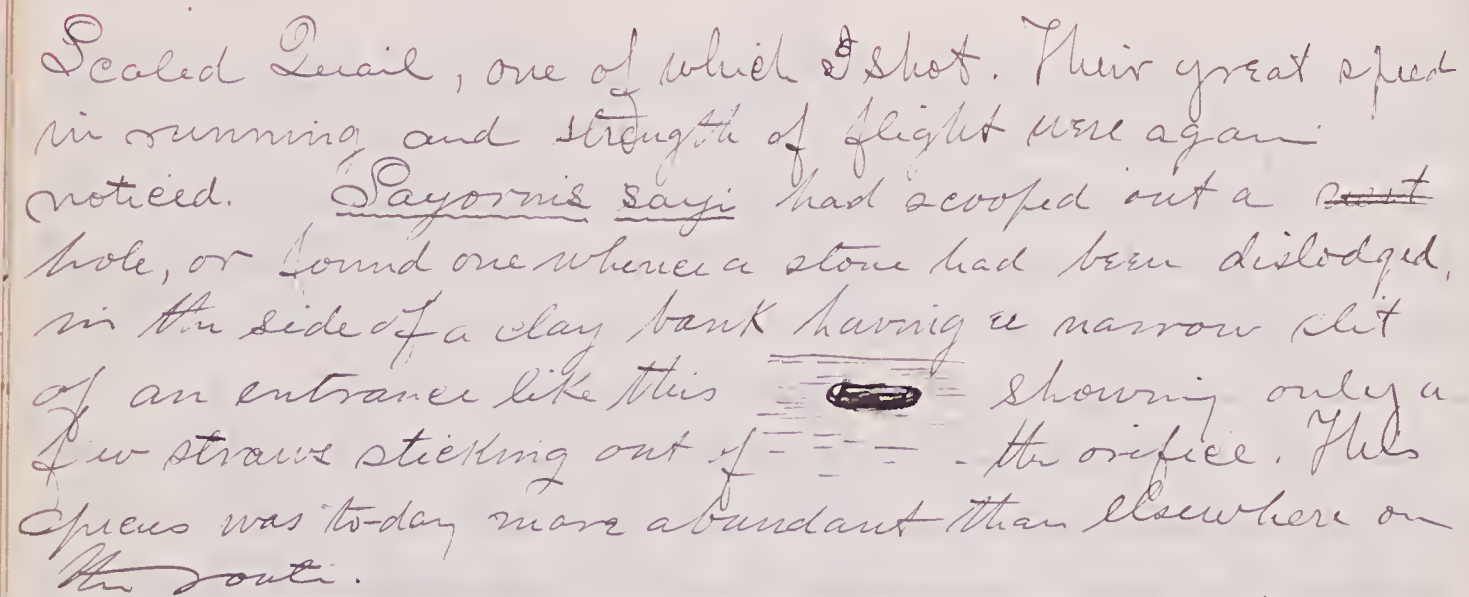 Scaled Quail, one of which I shot. Their great speed
in running and strength of flight were again
noticed. Sayornis sayi had scooped out a
hole, or found one whence a stone had been dislodged,
in the side of a clay bank having a narrow slit
of an entrance like this showing only a
few straws sticking out of the orifice. This
species was to-day more abundant than elsewhere on
the route.